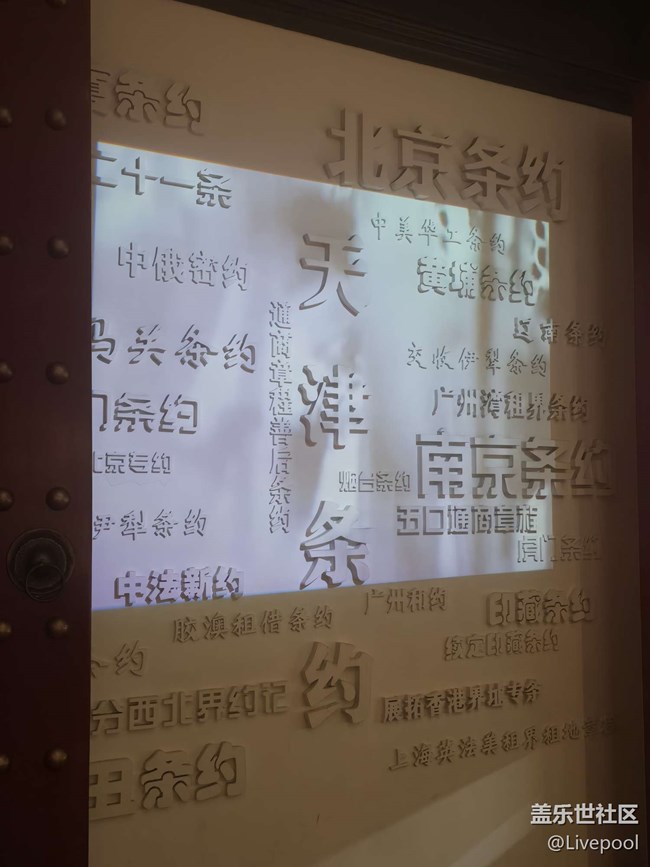 条约
北京条约
二十一条
中美华工条约
中俄密约
黄埔条约
天津条约
通商章程善后条约
辽南条约
马关条约
交收伊犁条约
广州湾租界条约
门条约
南京条约
北京专约
烟台条约
五口通商章程
伊犁条约
虎门条约
中法新约
广州和约
印藏条约
胶澳租借条约
续定印藏条约
条约
分西北界约记
展拓香港界址专条
上海英法美租界租地
田条约
盖乐世社区
@Livepool